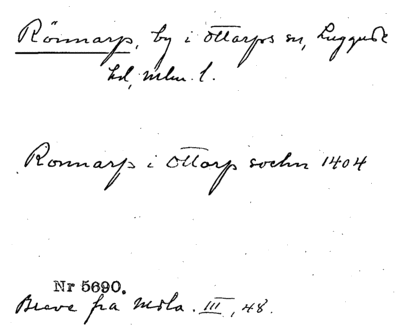 Rönnarp, by i Ottarps sn, Luggude
hd, mlm. l.
Ronnarp i Ottarp sochn 1404
Nr 5690.
Breve fra Msta. III, 48.